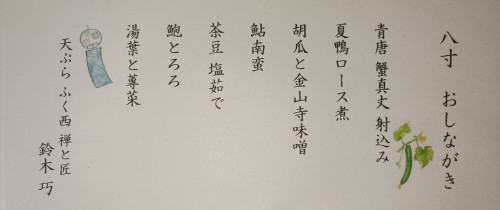 八寸　おしながき
青唐 蟹真丈 射込み
夏鴨ロース煮
胡瓜と金山寺味噌
鮎南蛮
茶豆 塩茹で
鮑とろろ
湯葉と蓴菜
天ぷら ふく西 禅と匠
鈴木 巧